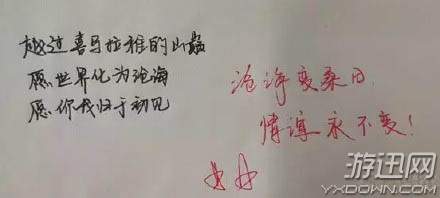 越过喜马拉雅的山巅
愿世界化为沧海
愿你我归于初见
沧海变桑田
情谊永不变!
游迅网
YXDOWN.COM